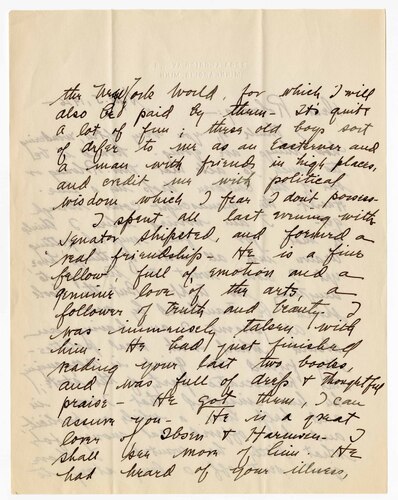 the New York World, for which I will
also be paid by them - Its quite
a lot of fun; these old boys sort
of defer to me as an Easterner and
a man with friends in high places,
and credit me with political
wisdom which I fear I don't possess -
I spent all last evening with
Senator Shipsted, and formed a
real friendship - He is a fine
fellow, full of emotion and a
genuine love of the arts, a
follower of truth and beauty. I
was immensely taken with
him. He had just finished
reading your last two books,
and was full of deep & thoughtful
praise - He got them, I can
assure you - He is a great
lover of Ibsen & - I
shall see more of him. He
had heard of your illness,